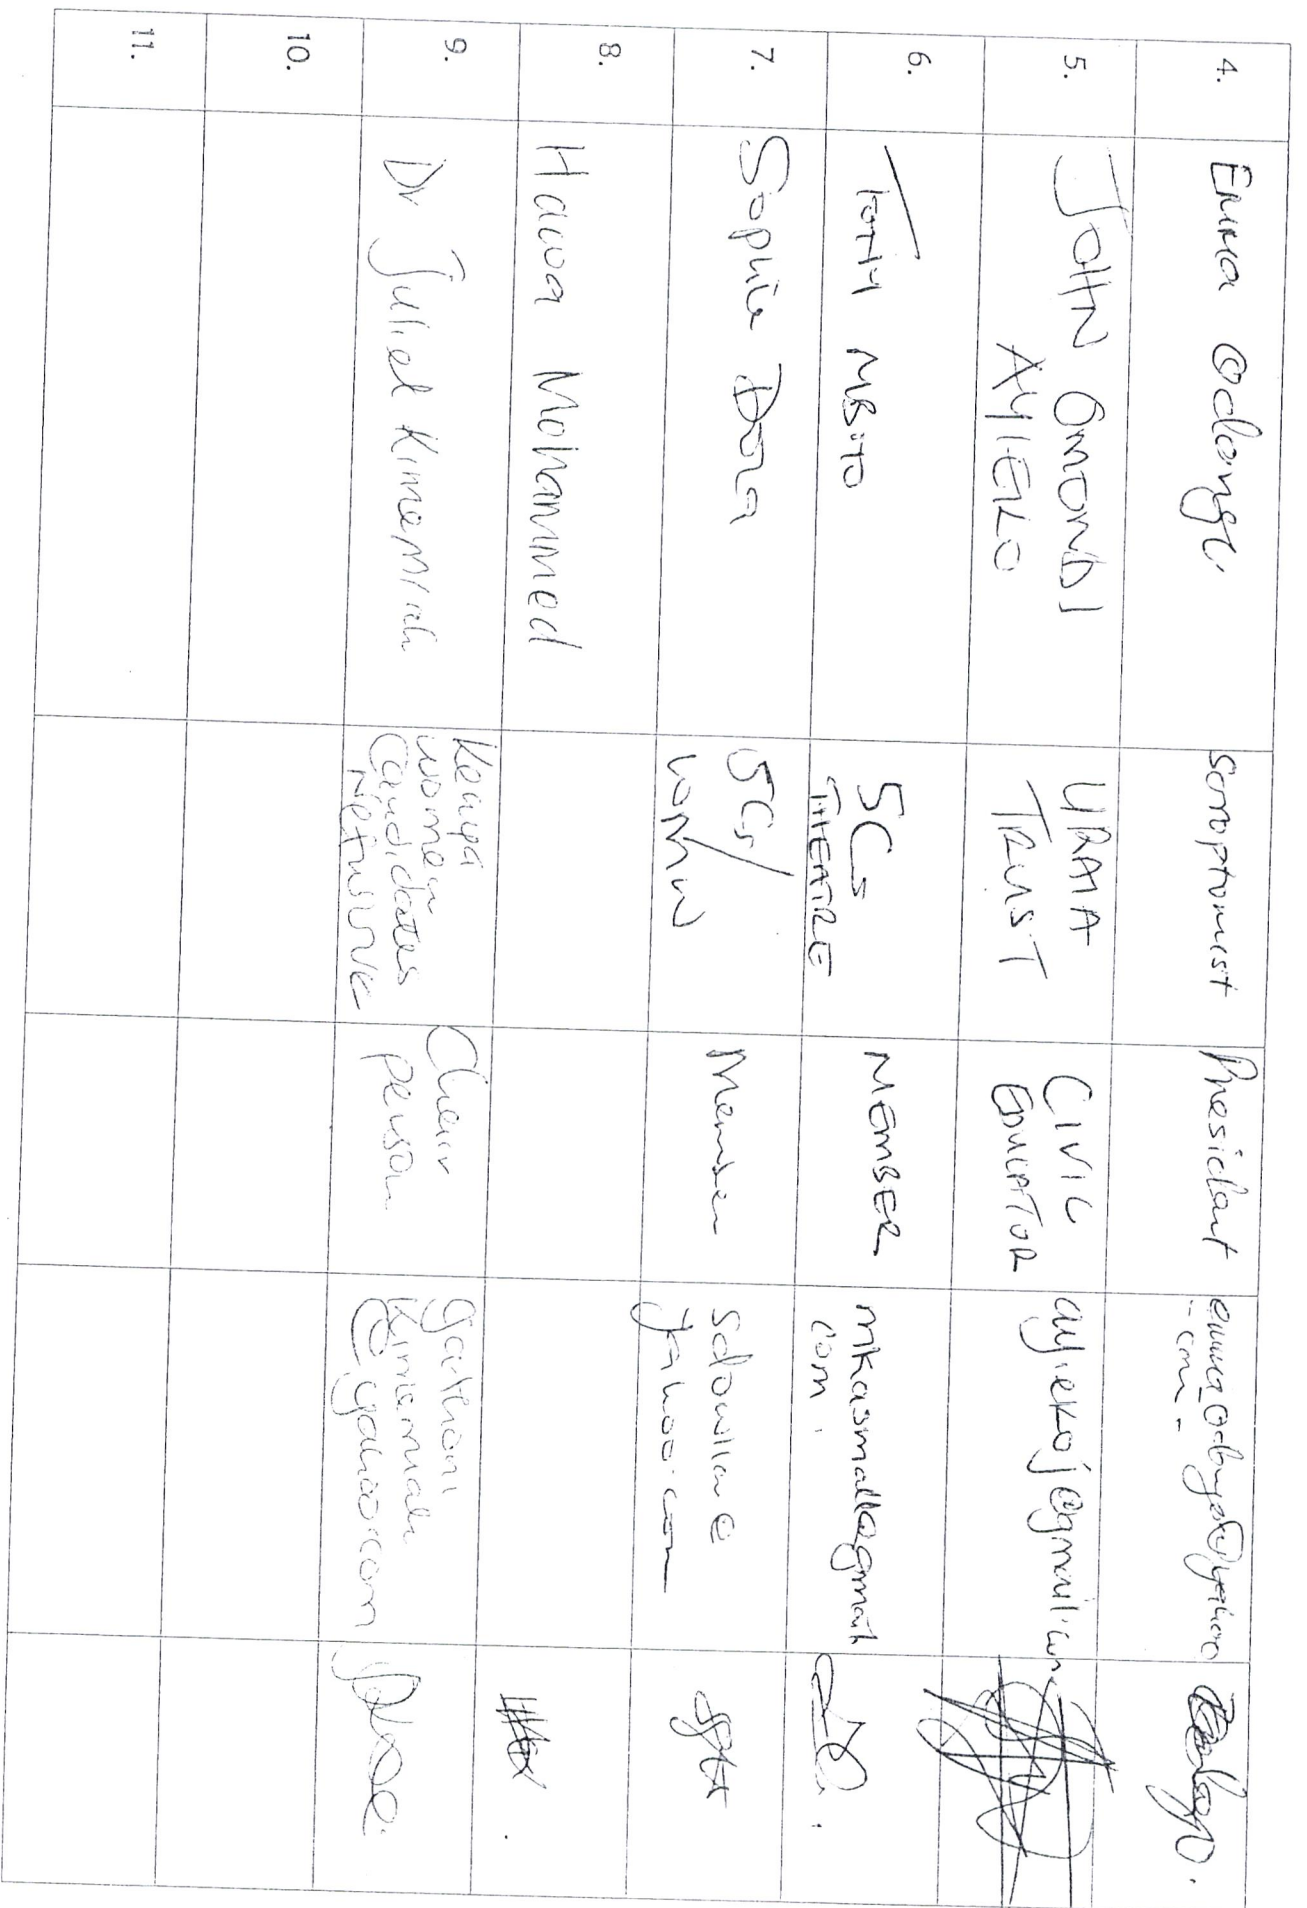 4. Emma Odongo Soroptomist President
5. JOHN OMONDI AYIEKO URAIA TRUST CIVIL EDUCATOR ayiekoj@gmail.com
6. MBOTO 5Cs THEATRE MEMBER mkasmall@gmail.com.
7. Sophie Dola 5Cs/ Member yahoo.com
8. Hawa Mohammed
9. Dr Juliet Kimemiah Kenya women Candidates Network Chair person gathoni kimemiah @yahoo.com
10.
11.